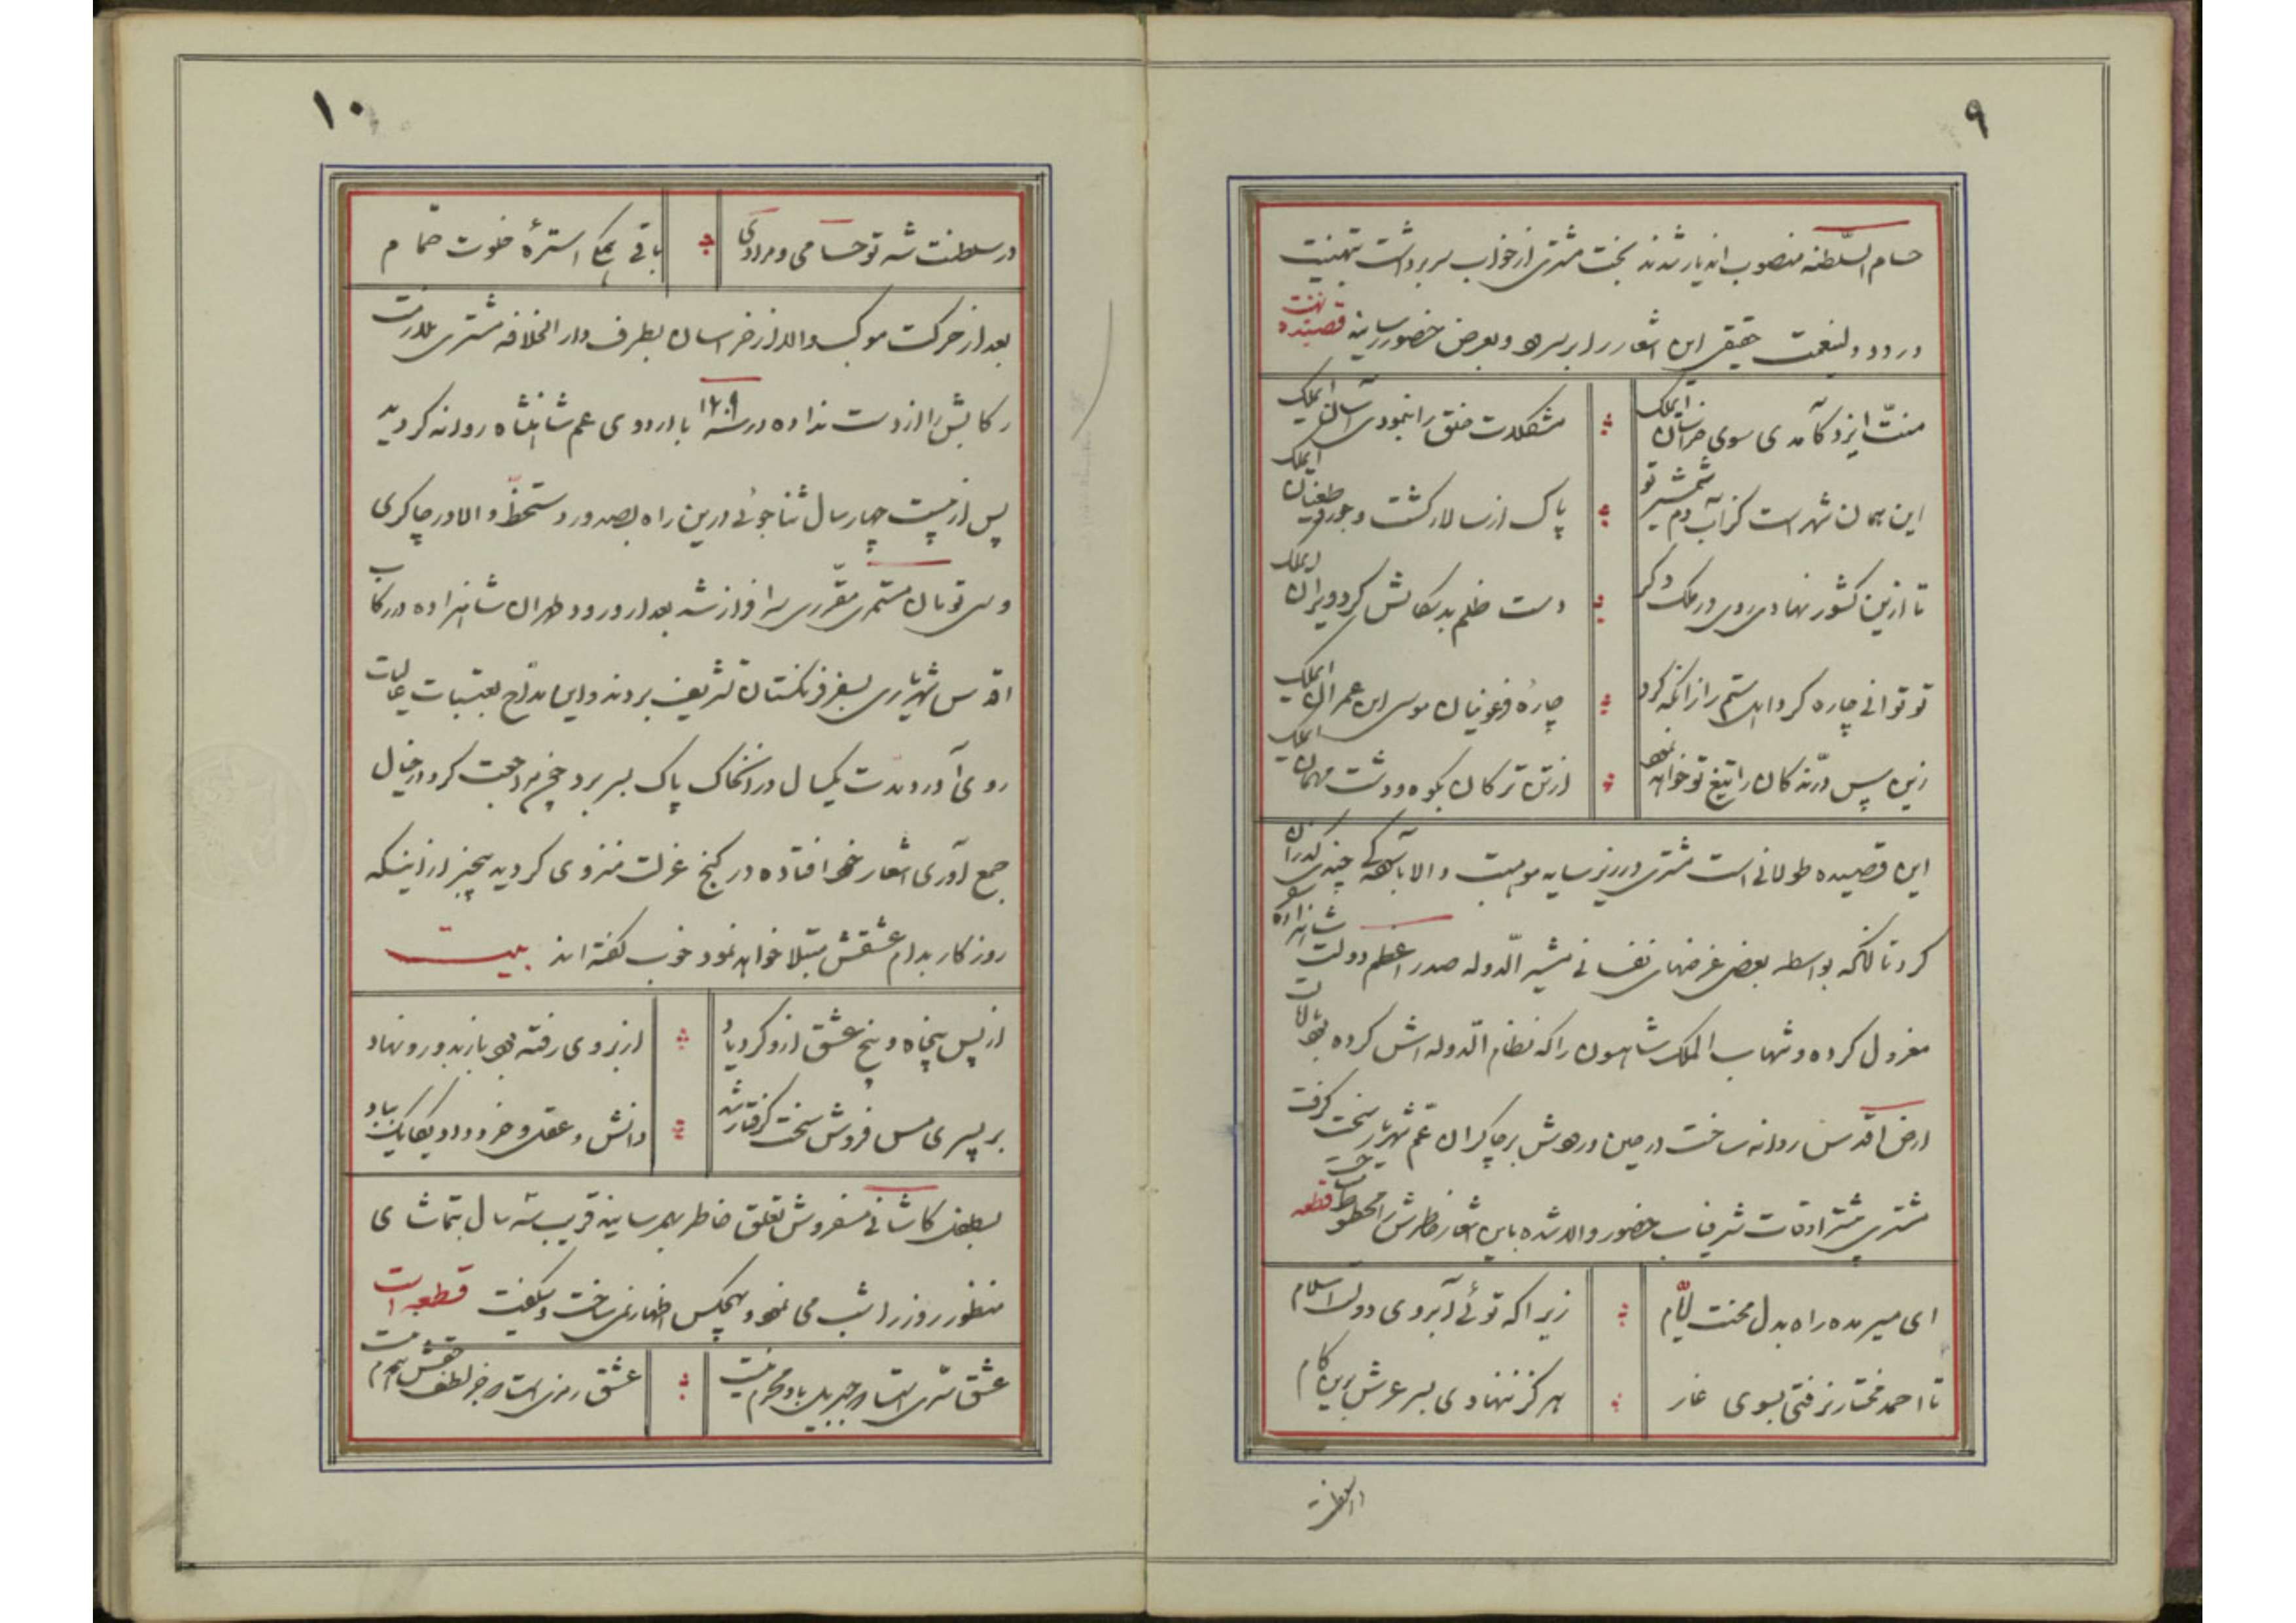 ۹
حسام السّلطنه منصوب اندیار شدند بخت مشتری از خواب سر برداشت بتهنیت
ورود ولینعمت حقیقی این اشعار را بر سر و بعرض حضور رسانید قصیده تهنیت
منّت ایزد کآمدی سوی خراسان ایملک
مشکلات خلق را بنمودی آسان ایملک
این همان شهر است کز آب دم شمشیر تو
پاک از سالار گشت و جور و طغیان ایملک
تا ازین کشور نهادی روی در ملک دگر
دست ظلم بدسگالش کرد ویران ایملک
تو توانی چاره کرد اهل ستم را زانکه کرد
چارهٔ فرعونیان موسی ابن عمران ایملک
زین سپس درّندگان را تیغ تو خواهد نمود
از تن ترکان بکوه و دشت مهمان ایملک
این قصیده طولانی است مشتری در زیر سایه موهبت والا بآسودگی چندی گذران
کرد تا آنکه بواسطه بعضی غرضهای نفسانی مشیر الّدوله صدر اعظم دولت شاهزاده را
معزول کرده و شهاب الملک شاهسون را که نظام الّدوله اش کرده بود بایالت
ارض اقدس روانه ساخت در حین ورودش بر چاکران عم شهریار سخت گرفت
مشتری بیشتر اوقات شرفیاب حضور والا شده باین اشعار خاطرش را محظوظ میساخت قطعه
ای میر مده راه بدل محنت ایّام
زیرا که توئی آبروی دولت اسلام
تا احمد مختار نرفتی بسوی غار
هرگز ننهادی بسر عرش برین گام
در سلطنت
۱۰
در سلطنت شه تو حسامی و مرادی
باقی همگی استرهٔ خلوت حمّام
بعد از حرکت موکب والا از خراسان بطرف دار الخلافه مشتری ملازمت
رکابش را از دست نداده در سنه ۱۲۰۹ با اردوی عم شاهنشاه روانه گردید
پس از بیست چهار سال ثناجوئی درین راه بصدور دستخطّ والا و چاکری
و سی تومان مستمری مقرری سرافراز شد بعد از ورود طهران شاهزاده در رکاب
اقدس شهریاری بسفر فرنگستان تشریف بردند و این مدّاح بعتبات عالیات
روی آورد و مدت یکسال در آنخاک پاک بسر برد و مراجعت کرد و در خیال
جمع آوری اشعار خود افتاده در کنج عزلت منزوی گردید بیخبر از اینکه
روزگار بدام عشقش مبتلا خواهد نمود خوب گفته اند بیت
از پس پنجاه و پنج عشق ازو کرد یاد
آبروی رفته بود باز بدو رو نهاد
بر پسری مس فروش سخت گرفتار شد
دانش و عقل و خرد داد یکایک بباد
بطفل کاشانی مسفروش تعلق خاطر بهم رسانید قریب سه سال بتماشای
منظور روز را شب می نمود و بهیچکس اظهار نمی ساخت و میگفت قطعه است
عشق سّری است که جبریل بدو محرم نیست
عشق رمزی است که جز لطف حقش همدم نیست